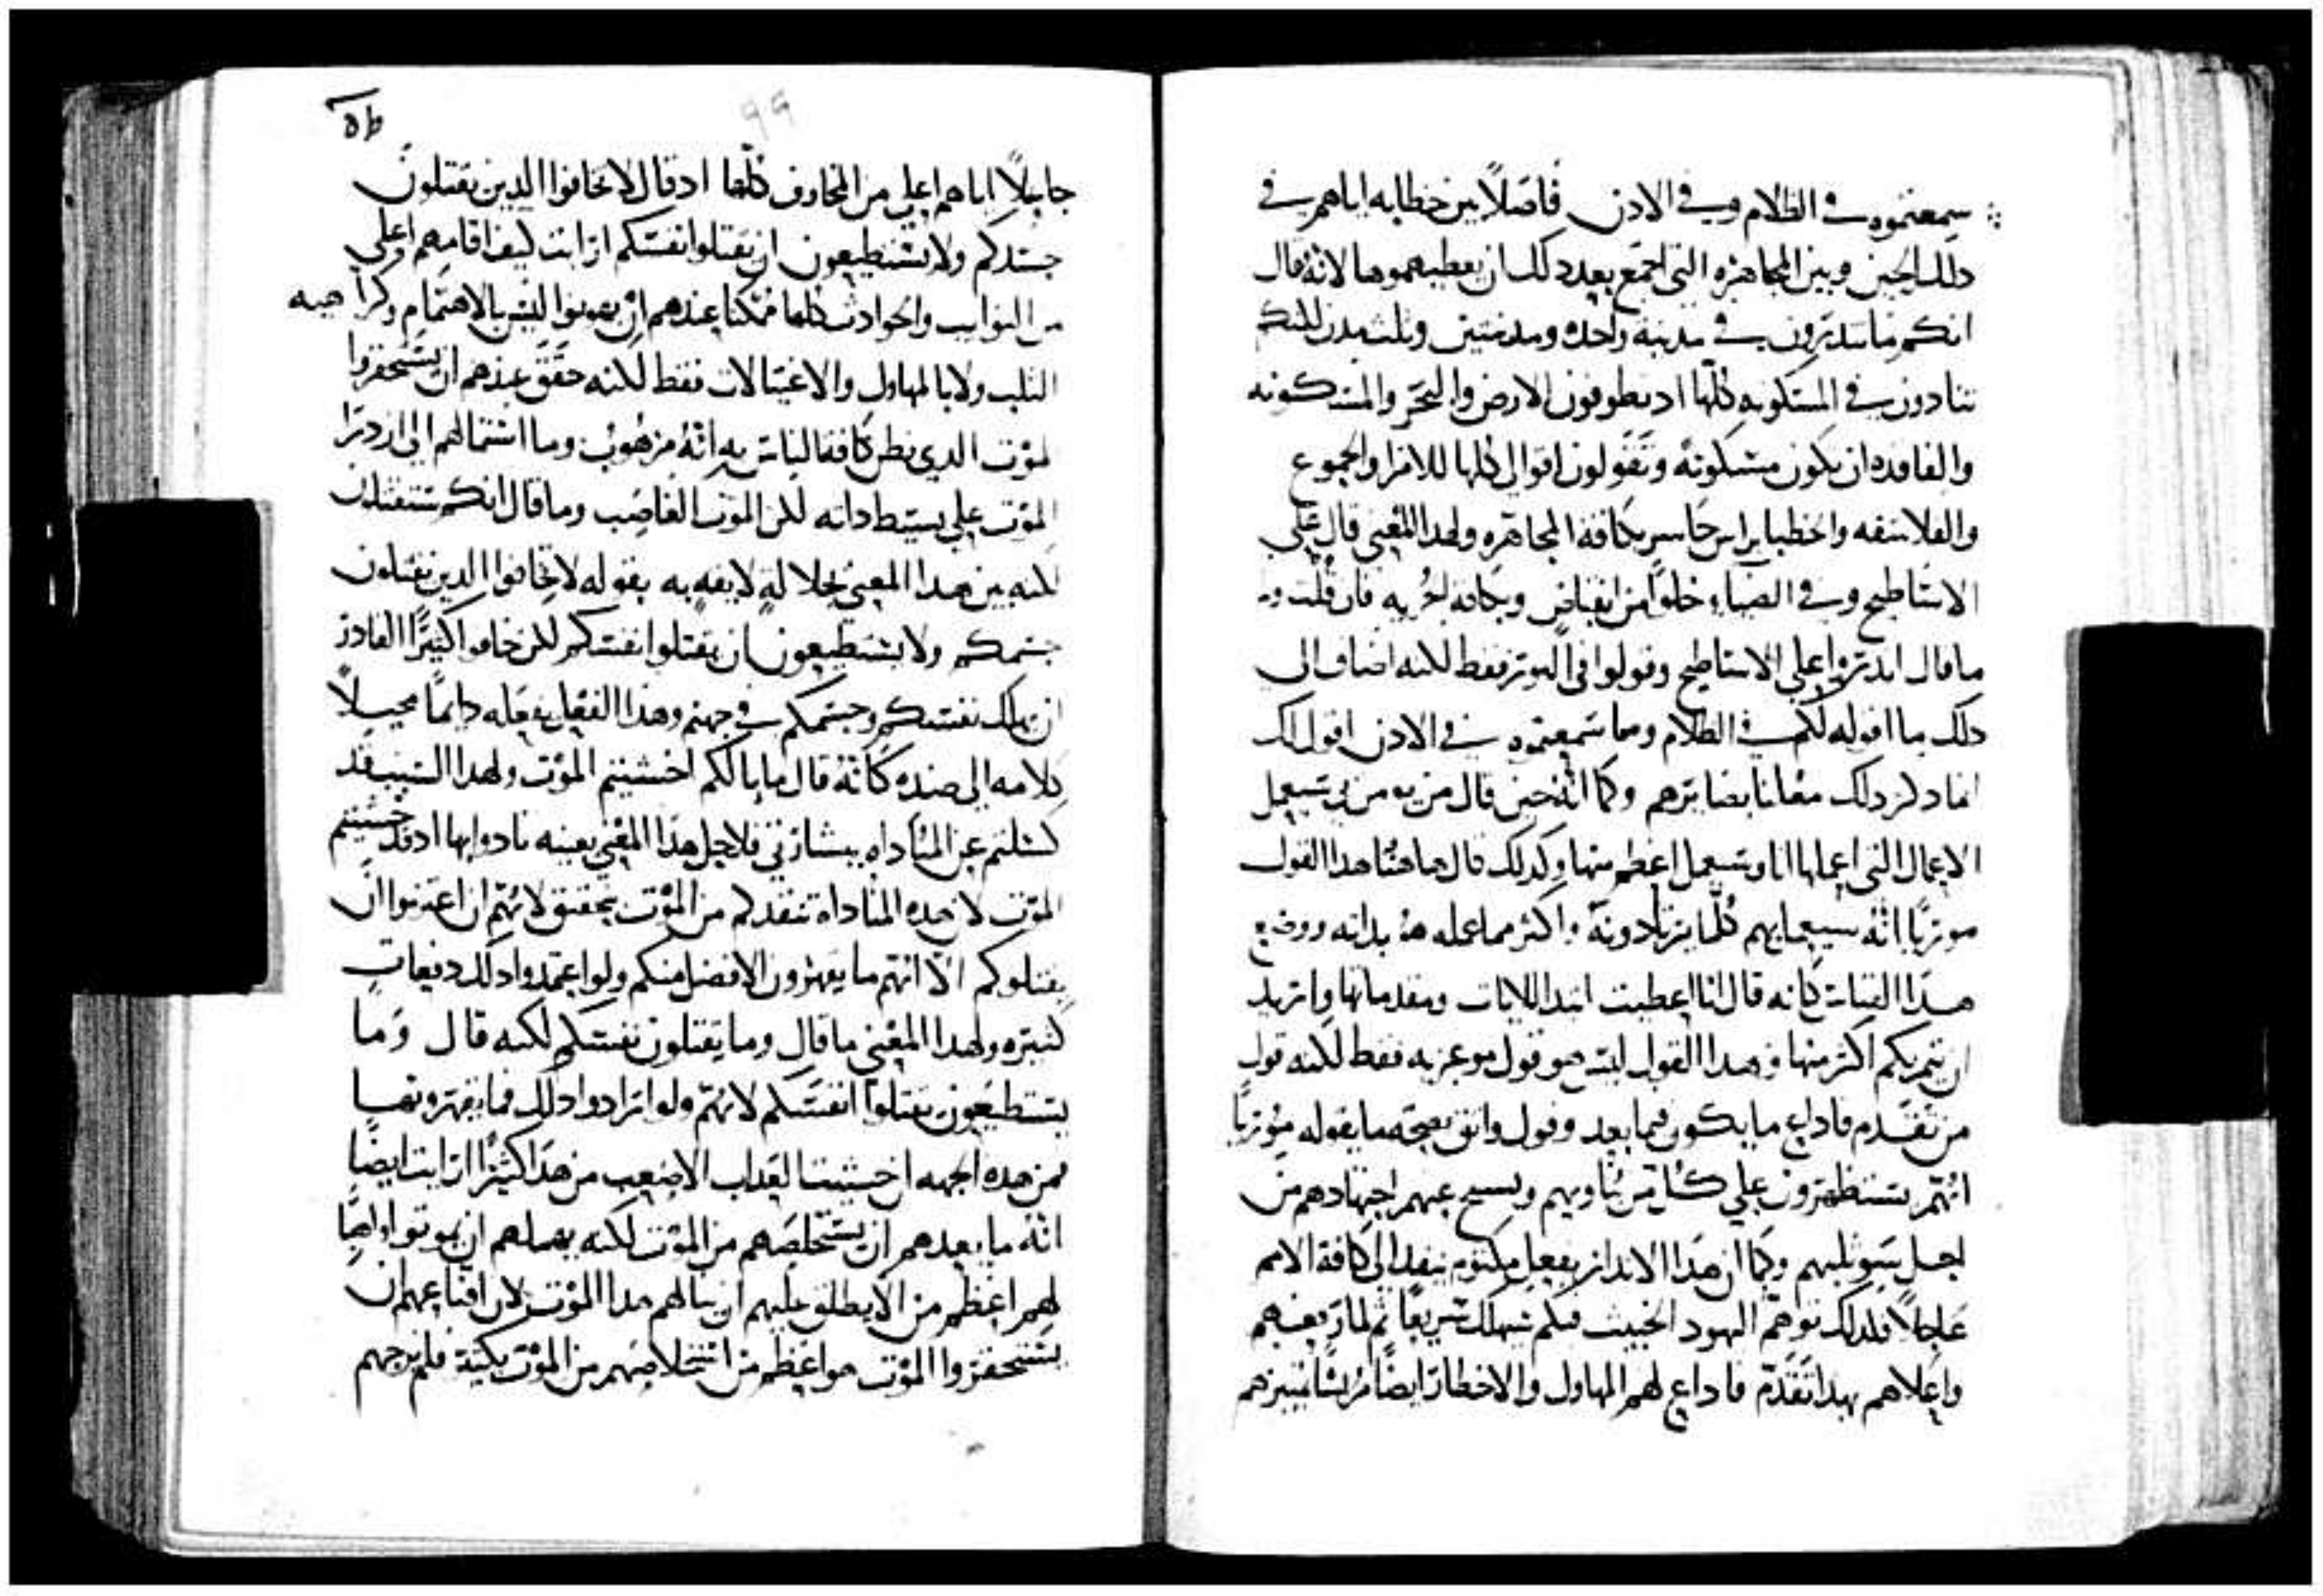 سمعتموه في الظلام وفي الادن فاصلاً بين خطابه اياهم في
دلك الحين وبين المجاهره التي اجمع بعد دلك ان يعطيهموها لانه قال
انكم ما تندرون في مدينه واحده ومدينتين وثلث مدن لكنكم
تنادون في المسكونه كلها اد تطوفون الارض والبحر والمسكونه
والفاقده ان تكون مسكونه وتقولون اقوالي كلها للامرا والجموع
والفلاسفه والخطبا براس حاسر بكافة المجاهره ولهدا المعني قال علي
الاسطاطيح وفي الضياء خلواً من انقباض وبكافه الحريه فان قلت و
ما قال اندروا علي الاسطاطيح وقولوا في النور فقط لكنه اضاف الي
دلك ما اقوله لكم في الظلام ومما سمعتموه في الادن اقول لك
انما دكر دلك مقاما بصايرهم وكما انه حين قال من يومن بي سيعمل
الاعمال التي اعملها انا وسيعمل اعظم منها وكدلك قال هاهنا هدا القول
موريًا انه سيعمل بهم كلما يريدونه واكثر مما عمله هو بداته ووضع
هدا القياس كانه قال انا اعطيت ابتدا الايات ومقدماتها واريد
ان تتم بكم اكثر منها وهدا القول ليس هو قول موعز به فقط لكنه قول
من تقدم فاداع ما يكون فيما بعد وقول واثق بصحة ما يقوله موريًا
انهم يستظهرون علي كل من يناويهم
لجل وكما ان هدا الاندار بفعل مكتوم ينفد الي كافة الامم
عاجلاً فلدلك توهم اليهود الخبيث فيكم سيهلك سريعًا ثم لما رفعهم
واعلاهم بهدا تقدم فاداع لهم المهاول والاخطار ايضًا
99
جاعلاً اياهم اعلي من المخاوف كلها اد قال لا تخافوا الدين يقتلون
جسدكم ولا يستطيعون ان يقتلوا نفسكم ارايت كيف اقامهم اعلي
من النوايب والحوادث كلها ممكنا عندهم ان يهونوا ليس بالاهتمام وكراهيه
الثلب ولا بالمهاول والاغتيالات فقط لكنه حقق عندهم ان يستحقروا
لموت الدي يظن كافة الناس به انه مرهوب وما استمالهم الي ازدرا
الموت علي بسيط داته لكن الموت الغاصب وما قال انكم ستقتلون
لكنه بين هدا المعني بجلالة لايقه به بقوله لا تخافوا الدين يقتلون
جسمكم ولا يستطيعون ان يقتلوا نفسكم لكن خافوا كثيرًا القادر
ان يهلك نفسكم وجسمكم في جهنم وهدا الفعل يفعله دايمًا محيلاً
كلامه الي ضده كانه قال ما بالكم اخشيتم الموت ولهدا السبب قد
كسلتم عن المناداه ببشارتي فلاجل هدا المعني بعينه نادوا بها اد قد خشيتم
الموت لان هده المناداه تنقدكم من الموت بتحقيق لانهم ان اعتزموا ان
يقتلوكم الا انهم ما يقهرون الافضل منكم ولو اعتمدوا دلك دفعات
كثيره ولهدا المعني ما قال وما يقتلون نفسكم لكنه قال وما
يستطيعون يقتلوا انفسكم لانهم ولو ارادوا دلك فما يقهرونها
فمن هده الجهه ان خشيت العداب الاصعب من هدا كثيرًا ارايت ايضًا
انه ما يعدهم ان يستخلصهم من الموت لكنه يهملهم ان يموتوا واهبًا
لهم اعظم من الا يطلق عليهم ان ينالهم هدا الموت لان اقناعهم ان
يستحقروا الموت هو اعظم من استخلاصهم من الموت بكتير فلم يزجهم